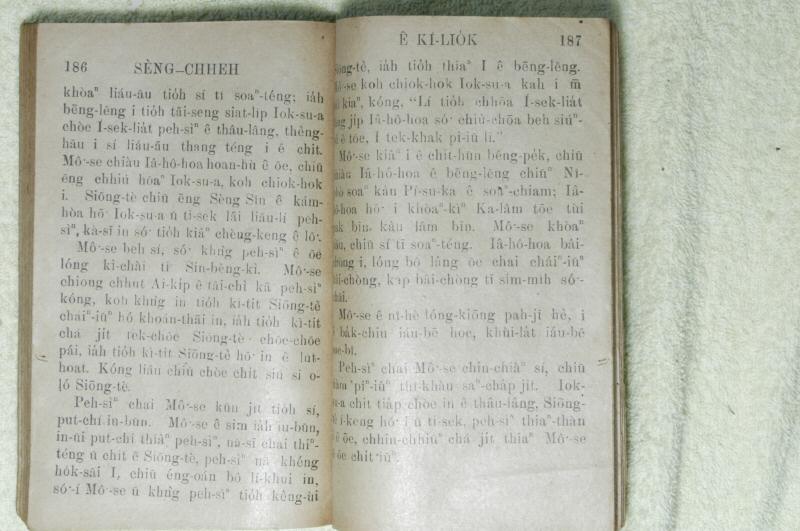 186 SÈNG–CHHEH
khòaⁿ liáu-āu tio̍h sí tī soaⁿ-téng; ia̍h
bēng-lēng i tio̍h tāi-seng siat-li̍p Iok-su-a
chòe Í-sek-lia̍t peh-sìⁿ ê thâu-lâng, thèng-
hāu i sí liáu-āu thang téng i ê chit.
Mô͘-se chiàu Iâ-hô-hoa hoan-hù ê ōe, chiū
ēng chhiú hōaⁿ Iok-su-a, koh chiok-hok
i. Siōng-tè chiū ēng Sèng Sîn ê kám-
hòa hō͘ Iok-su-a ū tì-sek lâi liāu-lí peh-
sìⁿ, kà-sī in só͘ tio̍h kiâⁿ chèng-keng ê lō͘.
Mô͘-se beh sí, só͘ khǹg peh-sìⁿ ê ōe
lóng kì-chāi tī Sin-bēng-kì. Mô͘-se
chiong chhut Ai-ki̍p ê tāi-chì kā peh-sìⁿ
kóng, koh khǹg in tio̍h kì-tit Siōng-tè
cháiⁿ-iūⁿ hó khoán-thāi in, ia̍h tio̍h kì-tit
chá ji̍t tek-chōe Siōng-tè chōe-chōe
pái, ia̍h tio̍h kì-tit Siōng-tè hō͘ in ê lu̍t-
hoat. Kóng liáu chiū chòe chit siú si o-
ló Siōng-tè.
Peh-sìⁿ chai Mô͘-se kūn ji̍t tio̍h sí,
put-chí iu-būn. Mô͘-se ê sim ia̍h iu-būn,
in-ūi put-chí thiàⁿ peh-sìⁿ, nā-sī chai thiⁿ-
téng ū chit ê Siōng-tè, peh-sìⁿ nā khéng
ho̍k-sāi I, chiū éng-oán bô lī-khui in,
só͘-í Mô͘-se ū khǹg peh-sìⁿ tio̍h kèng-ùi
Ê KÌ-LIO̍K 187
Siōng-tè, ia̍h tio̍h thiaⁿ I ê bēng-lēng.
Mô͘-se koh chiok-hok Iok-su-a kah i m̄
kiaⁿ, kóng, “Lí tio̍h chhōa Í-sek-lia̍t
ji̍p Iâ-hô-hoa só͘ chiù-chōa beh siúⁿ-
ê tōe, I tek-khak pì-iū lí.”
Mô͘-se kiâⁿ i ê chit-hūn bêng-pe̍k, chiū
chiàu Iâ-hô-hoa ê bēng-lēng chiūⁿ Nî-
pò soaⁿ kàu Pí-su-ka ê soaⁿ-chiam; Iâ-
hô-hoa hō͘ i khòaⁿ-kìⁿ Ka-lâm tōe tùi
pak bīn kàu lâm bīn. Mô͘-se khòaⁿ
liáu, chiū sí tī soaⁿ-téng. Iâ-hô-hoa bâi-
chòng i, lóng bô lâng ōe chai cháiⁿ-iūⁿ
bâi-chòng, kap bâi-chòng tī sím-mi̍h só͘-
chāi.
Mô͘-se ê nî-hè lóng-kiōng pah-jī hè, i
ê ba̍k-chiu iáu-bē hoe, khùi-la̍t iáu-bē
Peh-sìⁿ chai Mô͘-se chin-chiàⁿ sí, chiū
thî-khàu saⁿ-cha̍p ji̍t. Iok-
su-a chit tia̍p chòe in ê thâu-lâng, Siōng-
tè í-keng hō͘ i ū tì-sek, peh-sìⁿ thiaⁿ-thàn
i ê ōe, chhin-chhiūⁿ chá ji̍t thiaⁿ Mô͘-se
ê ōe chit iūⁿ.